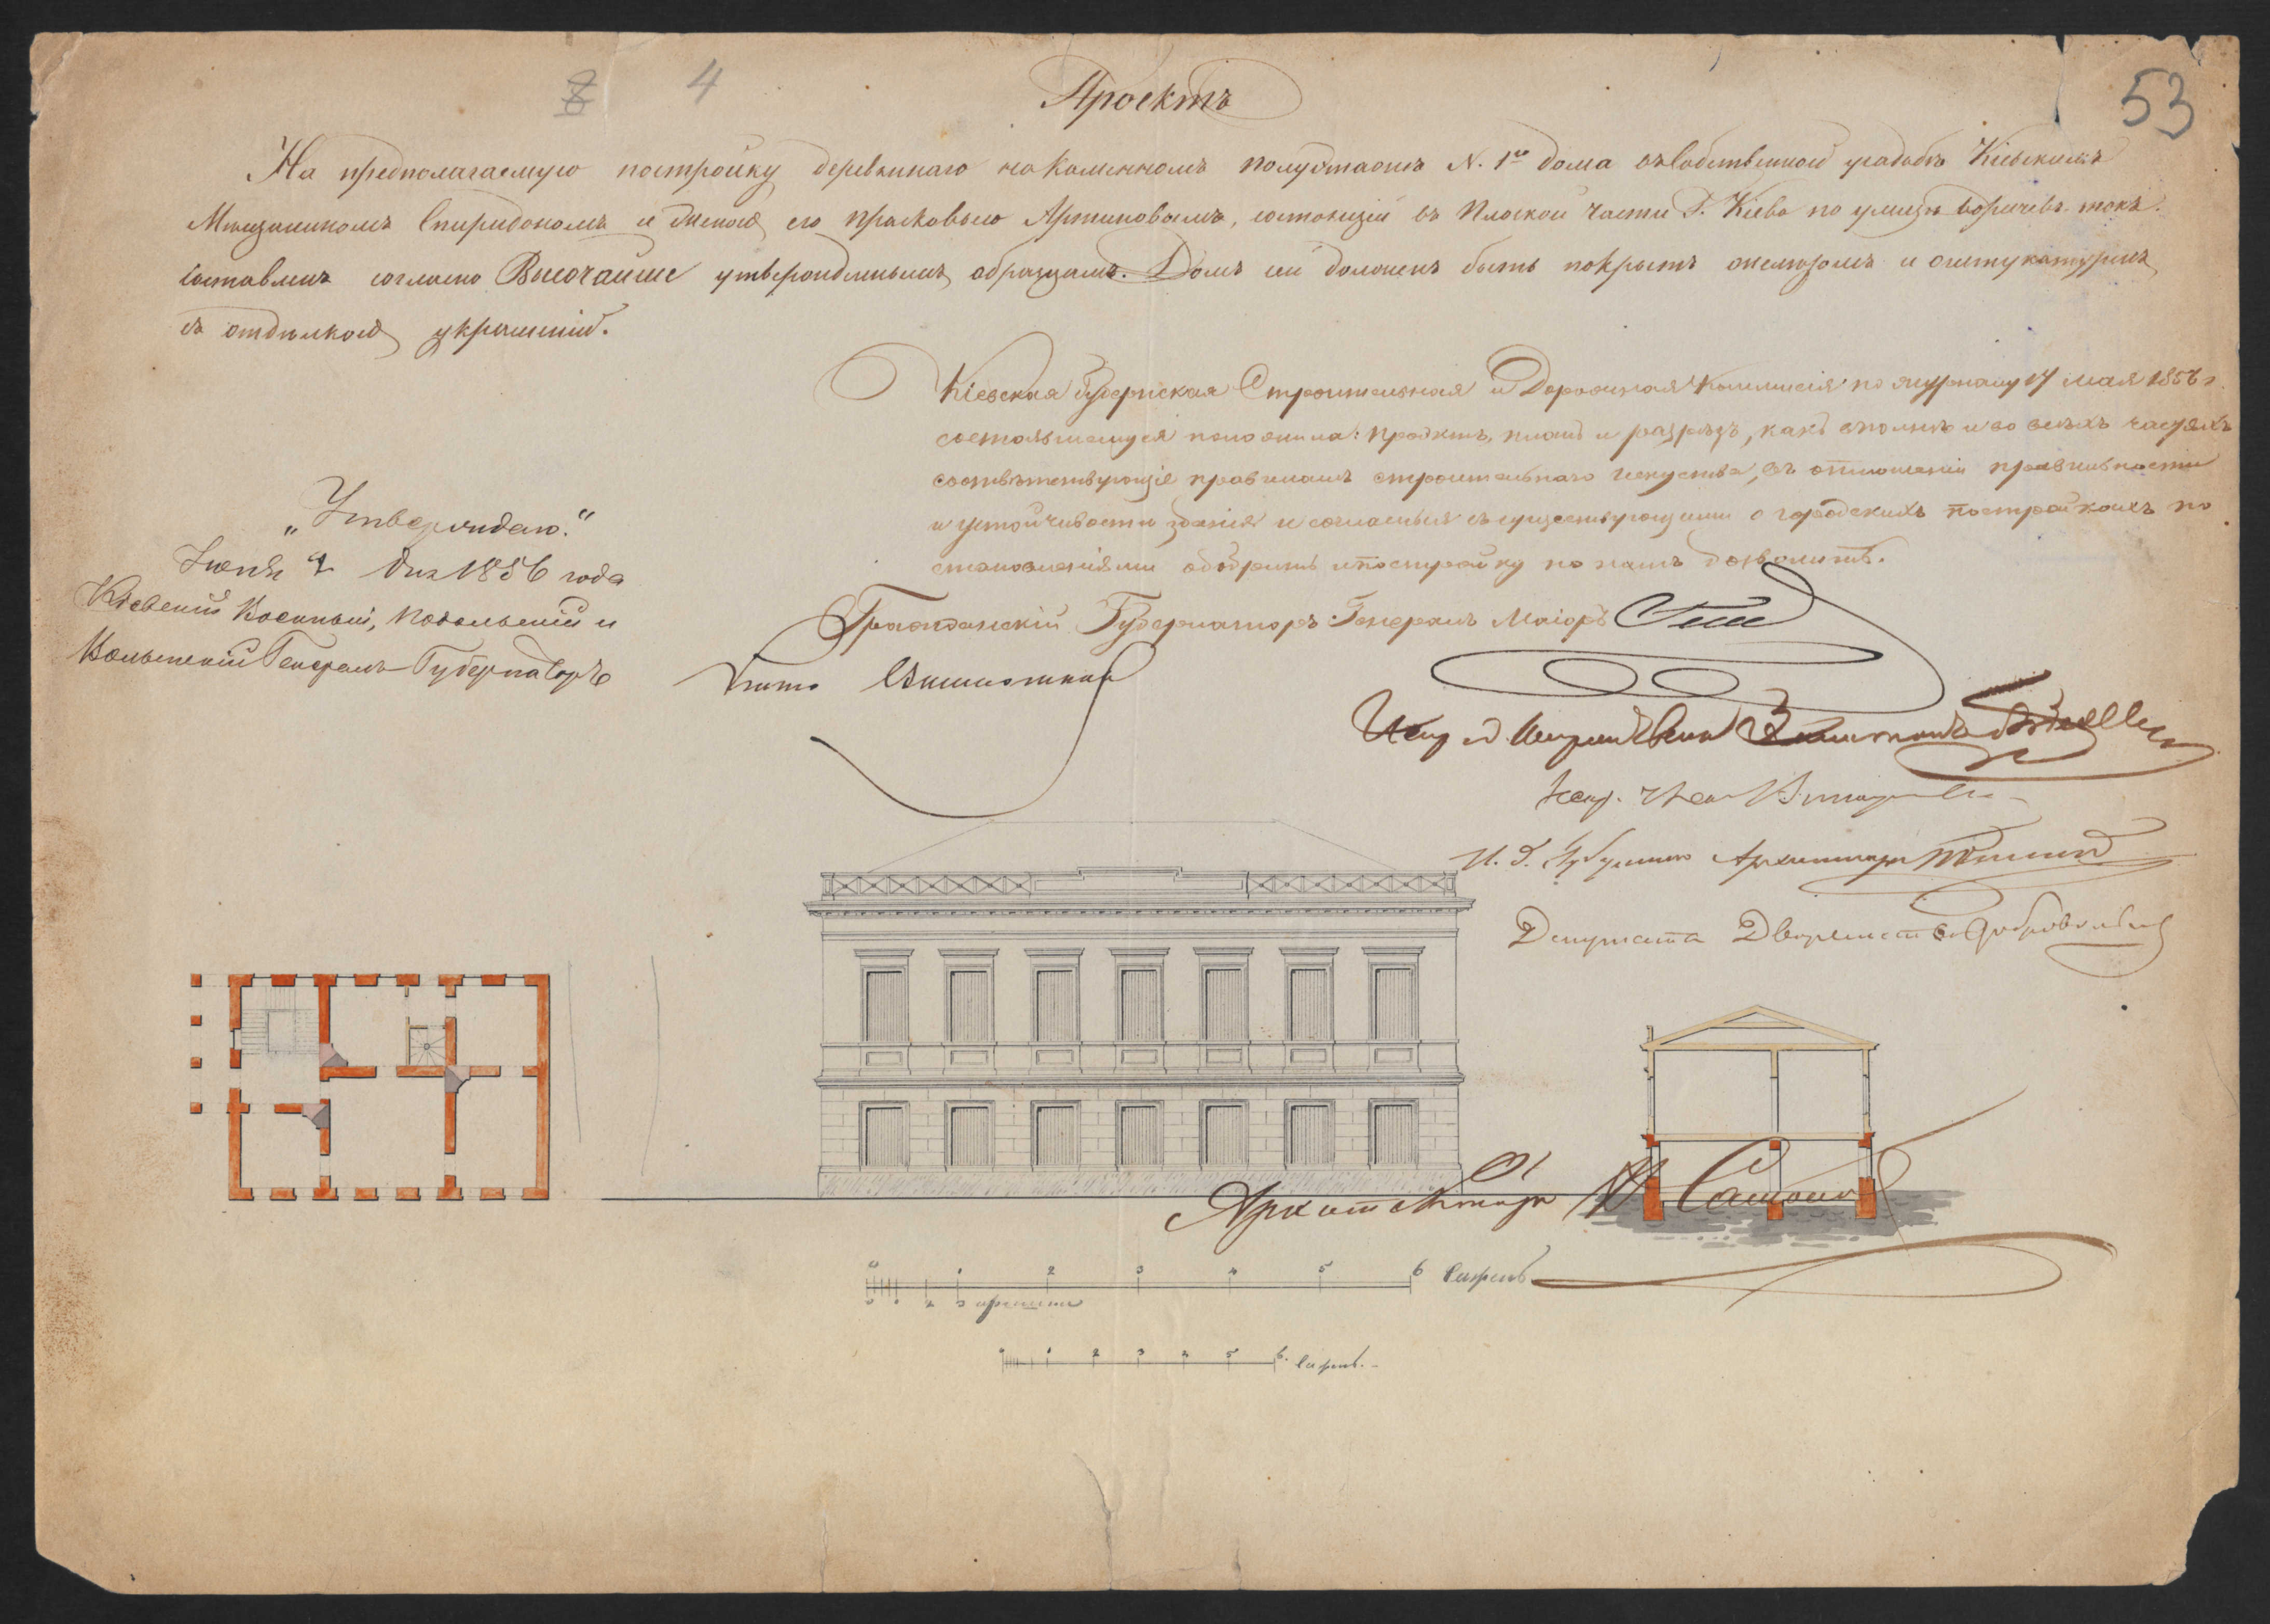 8 4
53
Проектъ
На предполагаемую постройку деревяннаго на каменномъ полуэтажѣ N. 1го дома въ собственной усадьбѣ Кіевскимъ
Мѣщаниномъ Спиридономъ и женою его Прасковьею Артиновымъ, состоящій въ Плоской части Г. Кіева по улицѣ Боричевъ-токъ.
составленъ согласно Высочайше утвержденнымъ образцамъ. Домъ сей долженъ быть покрытъ желѣзомъ и оштукатуренъ
съ отдѣлкою украшеній.
Кіевская Губернская Строительная и Дорожная Коммисія по журналу 17 мая 1856 г.
состоявшемуся положила: проэктъ, планъ и разрѣзъ, какъ вполнѣ и во всѣхъ частяхъ
соотвѣтствующіе правиламъ строительнаго искуства, въ отношеніи правильности
и устойчивости зданія и согласныя съ существующими о городскихъ постройкахъ по
становленіями одобрить и постройку по нимъ дозволить.
„Утверждаю."
Іюня 2 дня 1856 года
Кіевскій Военный, Подольскій и
Волынскій Генералъ-Губернаторъ
Гражданскій Губернаторъ Генералъ Маіоръ Гессе
Архитекторъ
Депутатъ Дворянства
0 1 2 3 4 5 6 Сажень
0 1 2 3 аршина
0 1 2 3 4 5 6. Сажень.